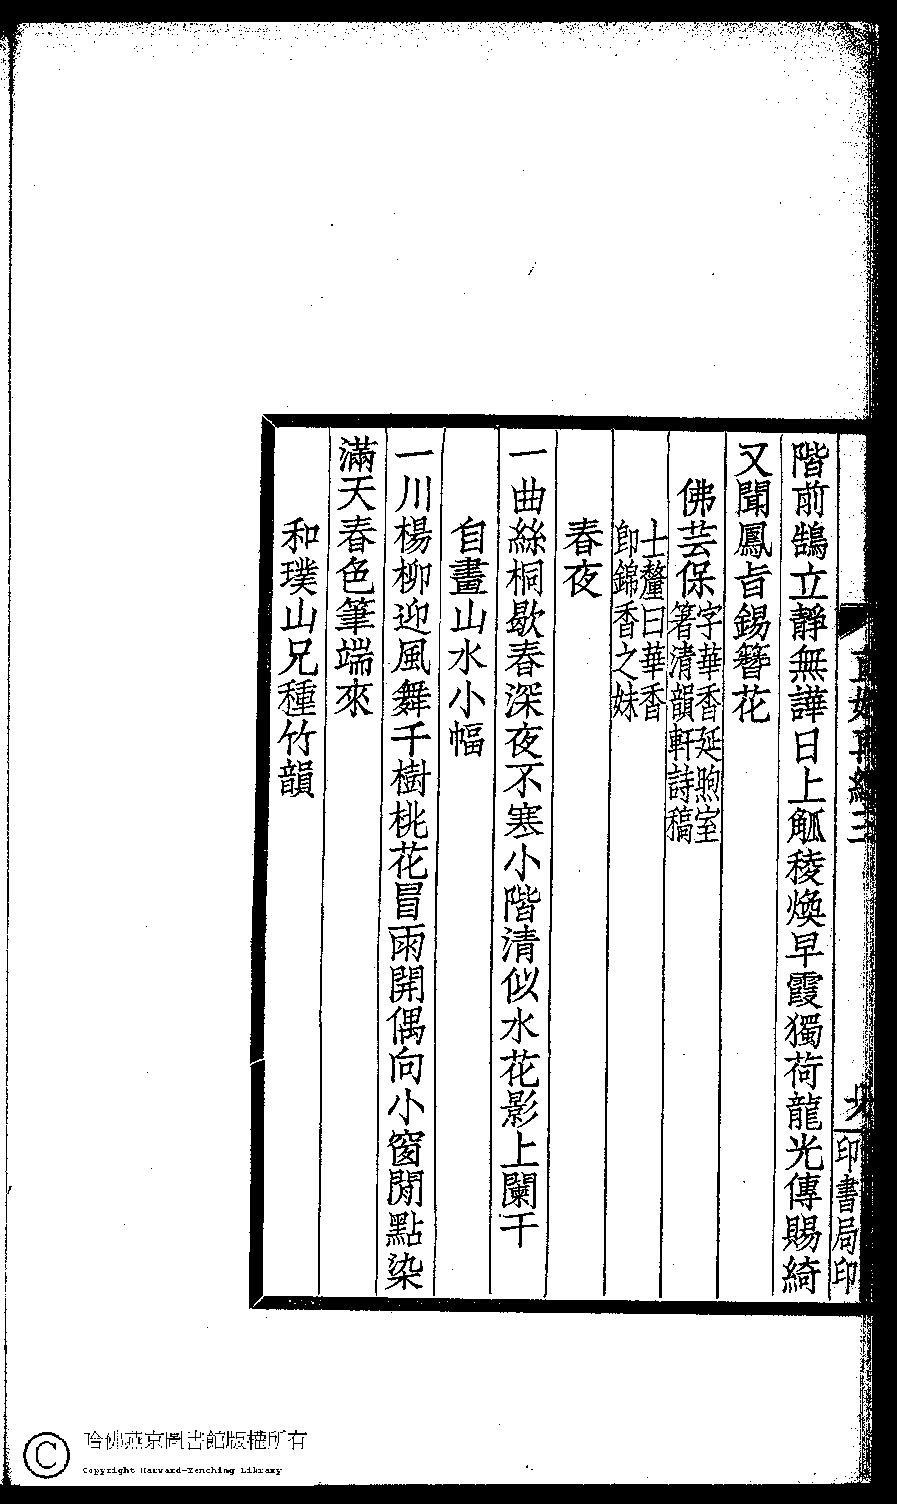 階前鵠立靜無譁日上觚稜煥早霞獨荷龍光傳賜綺
又聞鳳旨錫簪花
佛芸保字華香延煦室
箸清韻軒詩稿
士釐曰華香
卽錦香之妹
春夜
一曲絲桐歇春深夜不寒小階清似水花影上闌干
自畫山水小幅
一川楊柳迎風舞千樹桃花冒雨開偶向小窗閒點染
滿天春色筆端來
和璞山兄種竹韻
印書局印
哈佛燕京圖書館版權所有
Copyright Harvard-Yenching Library